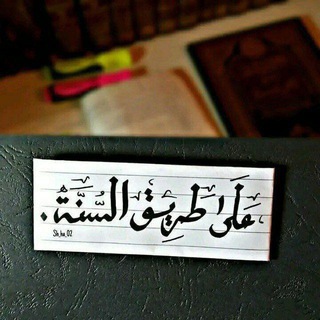 على طريق السنة.
Sh_ha_02